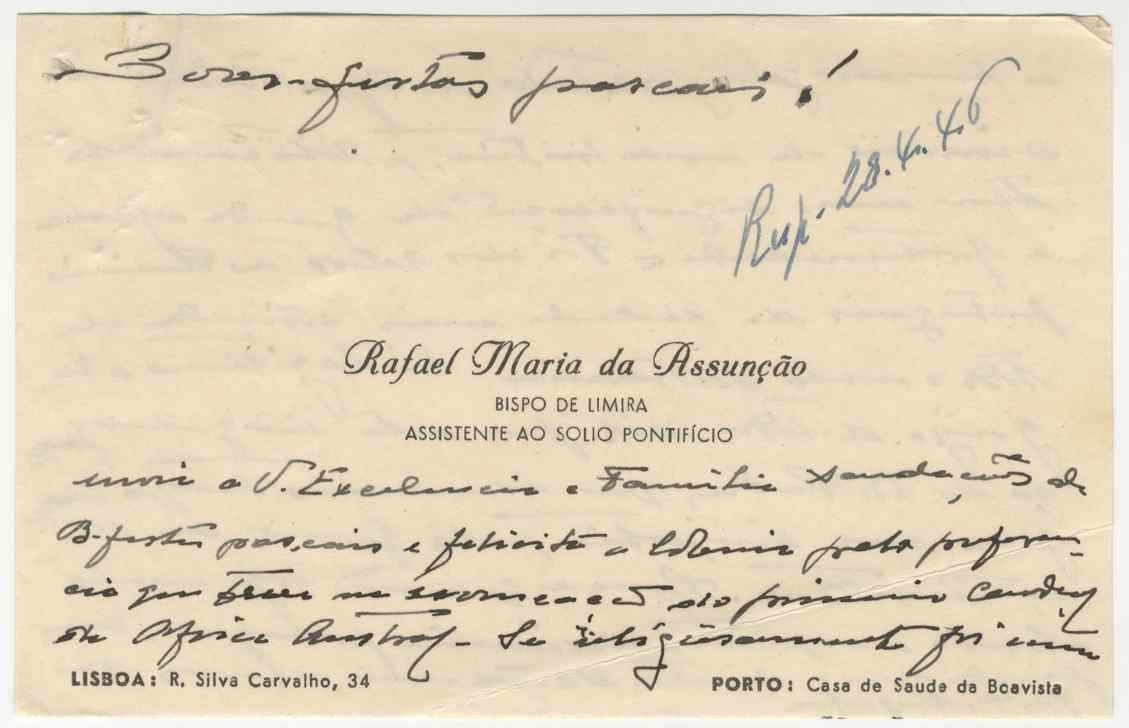 Boas-festas pascais!
Resp. 28.4.46
Rafael Maria da Assunção
BISPO DE LIMIRA
ASSISTENTE AO SOLIO PONTIFÍCIO
envia a V. Excelencia e Familia saudações de
B-festas pascais e felicita a Colonia pela preferen-
cia que teve na nomeação do primeiro Cardeal
da Africa Austral. Se religiosamente foi uma
LISBOA: R. Silva Carvalho, 34
PORTO: Casa de Saude da Boavista